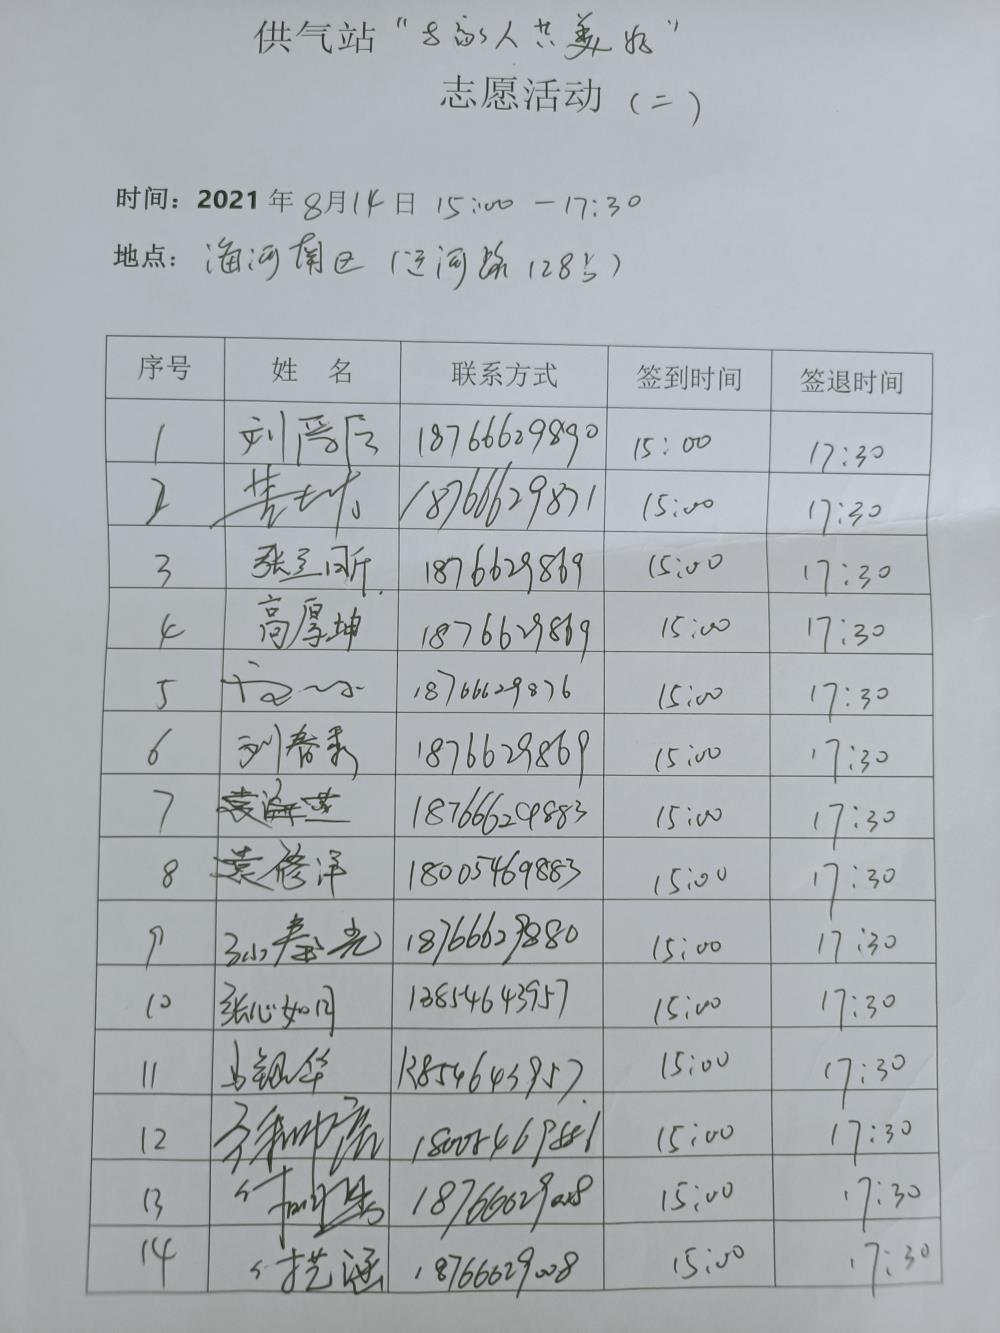 供气站“与家人共美好”
志愿活动(二)
时间：2021年8月14日 15:00-17:30
地点：海河南区(运河路128号)
序号 姓 名 联系方式 签到时间 签退时间
1 刘 18766629890 15:00 17:30
2 18766629871 15:00 17:30
3 张立昕 18766629869 15:00 17:30
4 高厚坤 18766629869 15:00 17:30
5 18766629876 15:00 17:30
6 刘春秀 18766629869 15:00 17:30
7 袁海燕 18766629883 15:00 17:30
8 袁修洋 18005469883 15:00 17:30
9 孙秦光 18766629880 15:00 17:30
10 张心如 13854643957 15:00 17:30
11 马银华 13854643957 15:00 17:30
12 15:00 17:30
13 18766629008 15:00 17:30
14 艺涵 18766629008 15:00 17:30